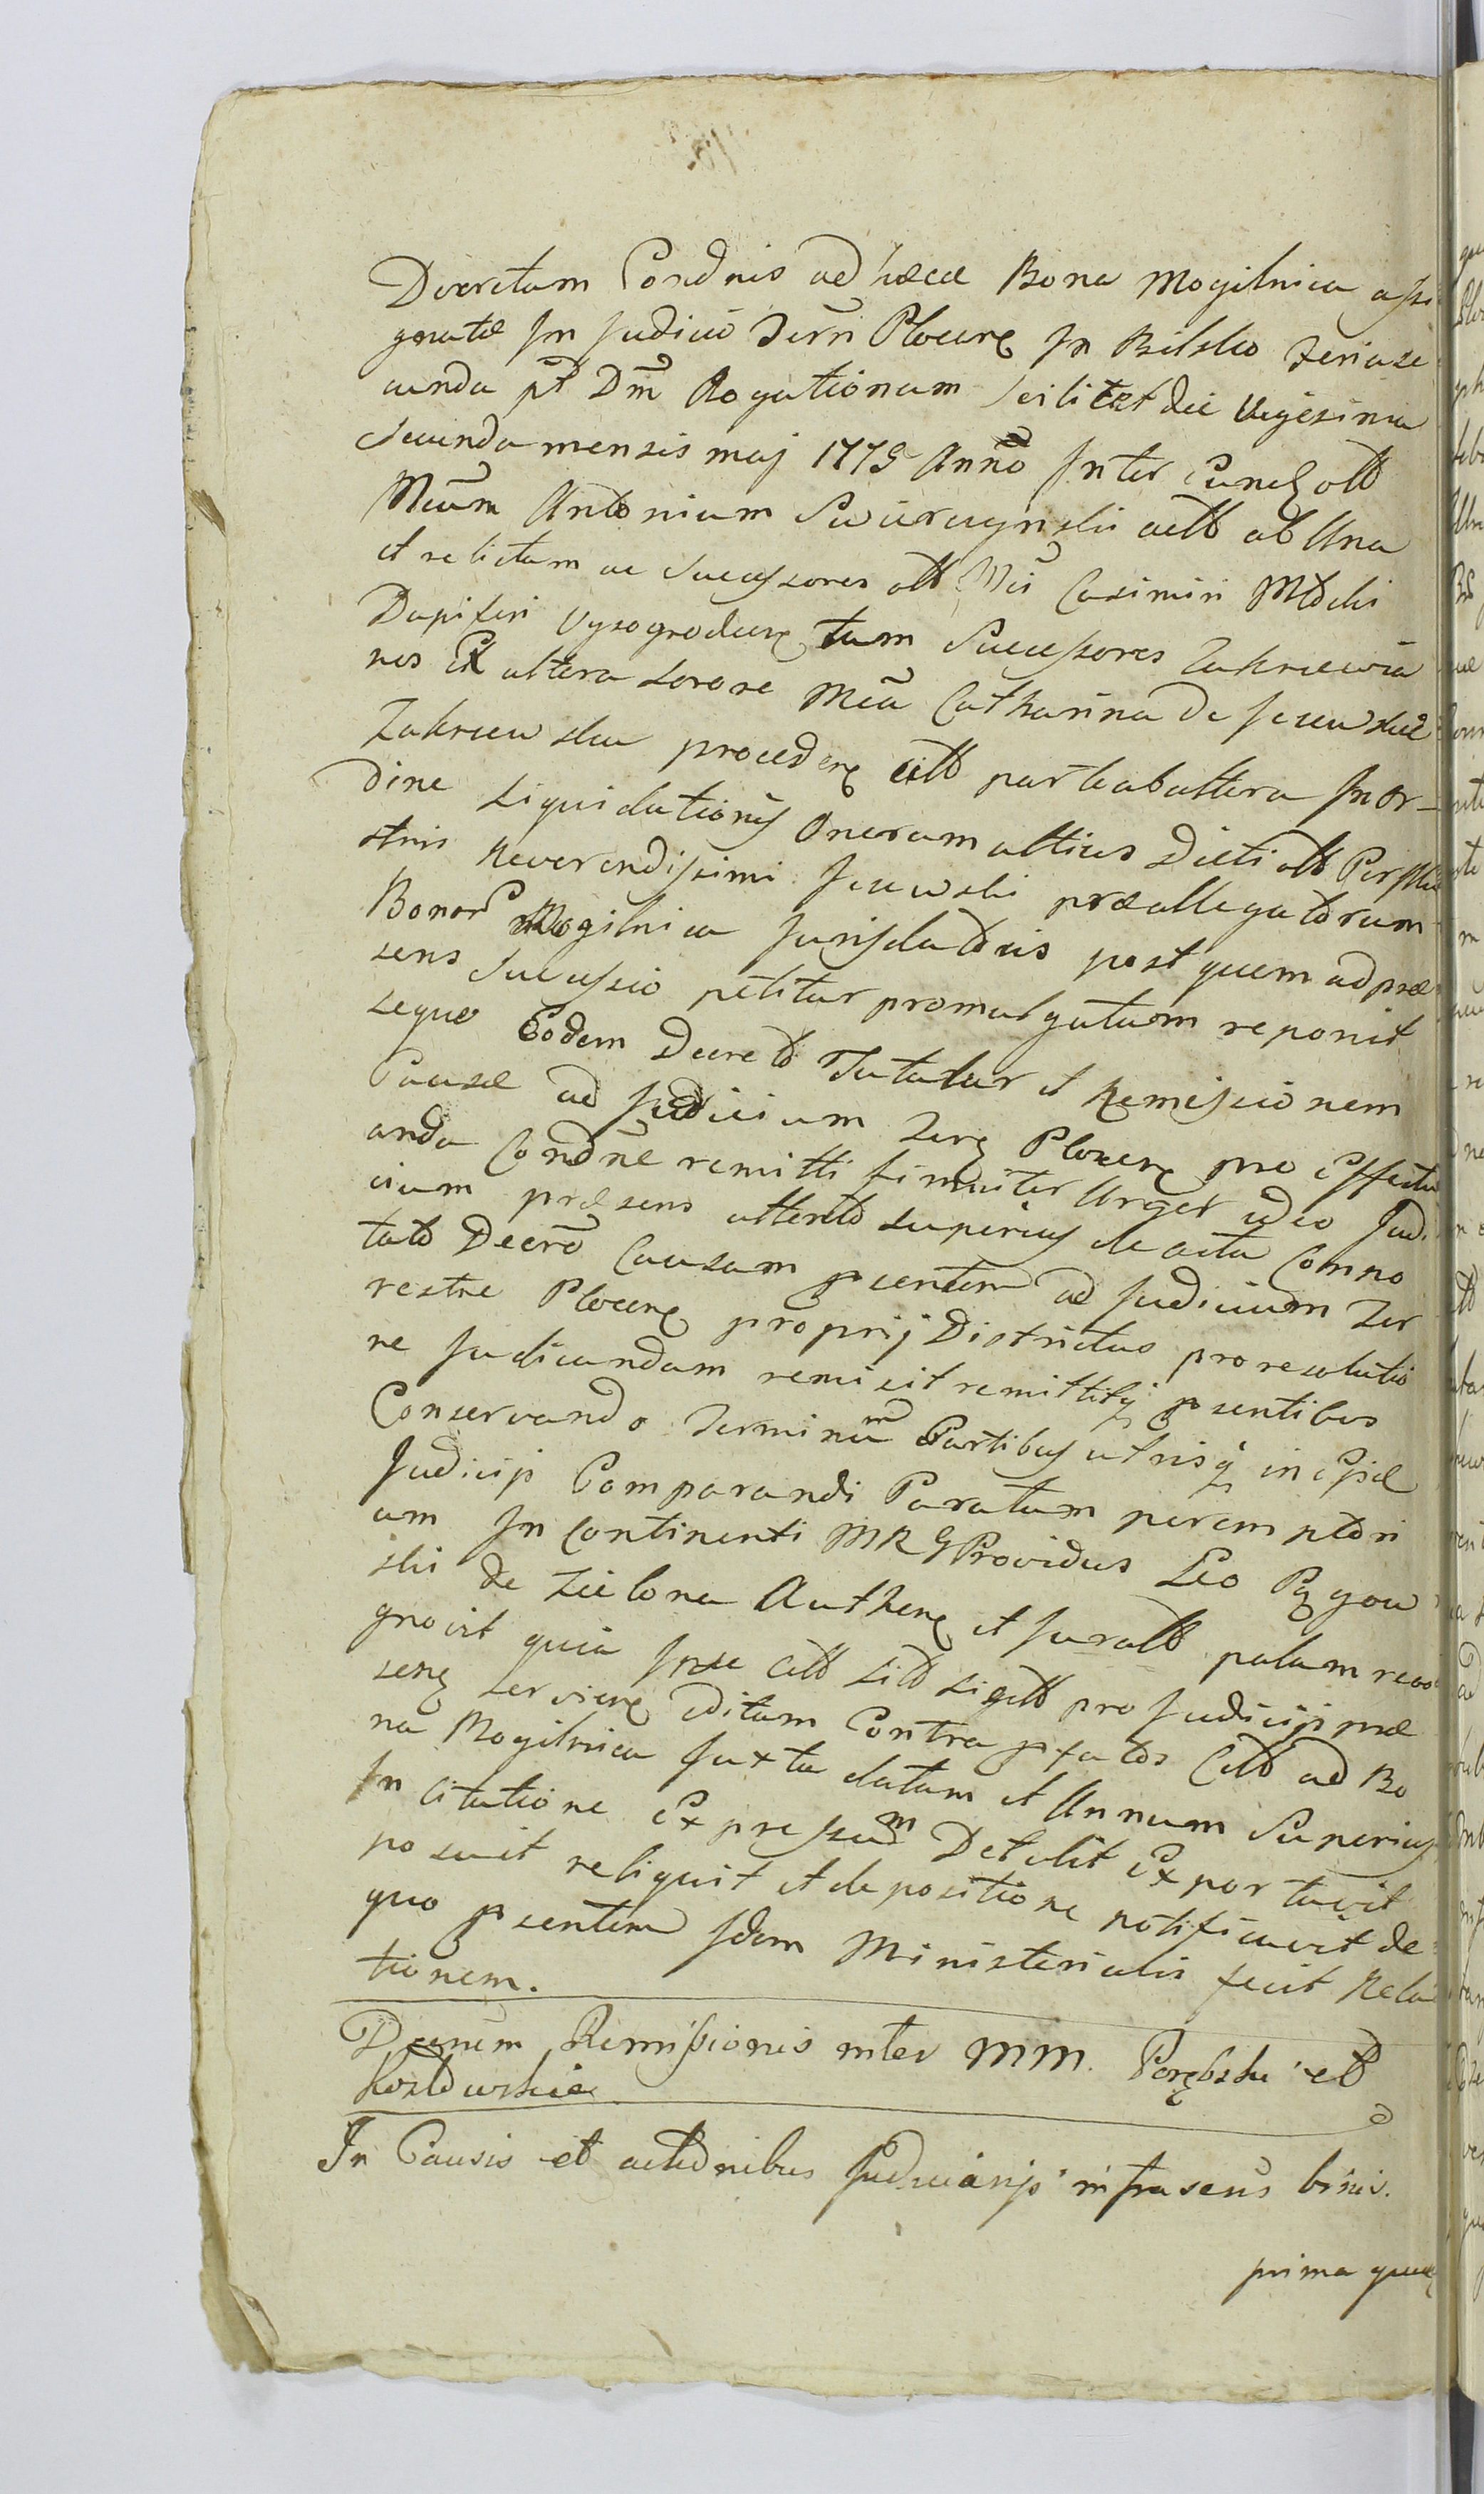 Decretum Condnis ad hæcce Bona Mogilnica assi
gnatæ in Judicio Terri Plocens in Bielsko feria se
cunda pt Dm Rogationum scilicet die Vigesima
Secunda mensis maj 1775 Anno Inter
Mcum Antonium Swierczynski actt ab Una
et relictam ac Successores olt Mci Casimiri Mdzki
Dapiferi Vysogrodiens tum Successores Zakrzewia
nos Ex altera sorore Mca Catharina de
Zakrzewska proceden citt parte ab altera In Or-
dine Liquidationis Onerum altius dicti olt
Reverendissimi præallegatorum
Bonor Mogilnica Jurisdatoris post quem ad præ
sens Successio petitur promulgatum reponit
seque Eodem Decreto Tutatur et Remissionem
Causæ ad Judicium Terr Plocens pro Effectu
anda Condne remitti firmiter Urget ideo Judi
cium præsens attento superius de acta Compo
tato Decro Causam psentem ad Judicium Ter
restre Plocens proprij Districtus pro resolutio
ne Judicandam remisit remittitq psentibus
Conservando Terminum Partibus utrisq in Esse
Judicij Comparandi Paratum peremptori
um In Continenti MRG Providus Leo
ski de Zielona Authen et Juratt palam reco
gnovit quia Ipse citt sitt sigitt pro Judicij præ
sens Servien editam Contra pfatos Citt ad Bo
na Mogilnica Juxta datam et Annum Superius
In Citatione Expressum Detulit Exportavit
posuit reliquit et de positione notificavit de
quo psentem Idem Ministerialis fecit Rela
tionem.
Decrum Remissionis inter MM. Porębski et
Kozłowskie
In Causis et actionibus Judiciarijs infrascris binis.
prima quæ